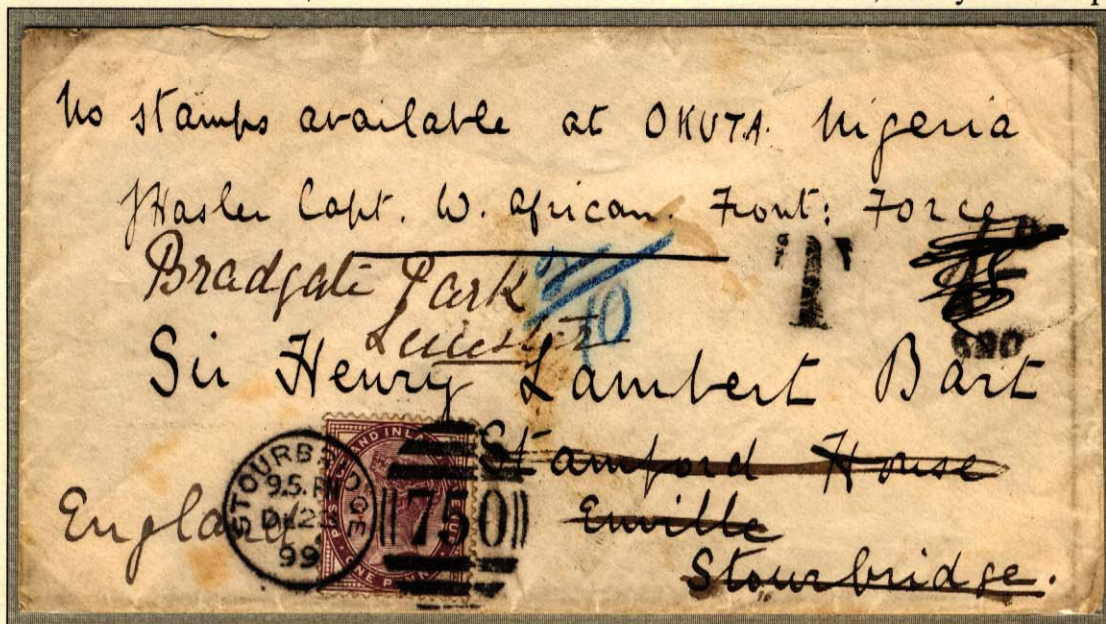 No stamps available at OKUTA. Nigeria
JHasler Capt. W. African. Front: Force
Bradgate Park
Leicester
T
10
Sir Henry Lambert Bart
Stamford House
England
Enville
Stourbridge.
STOURBRIDGE
9.5.PM
DE 2
99
750
ONE PENNY